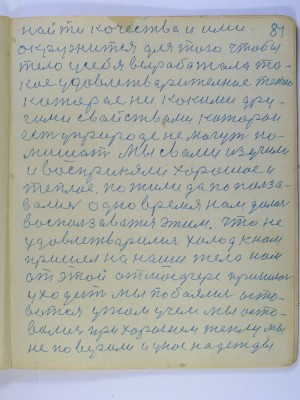 найти кочества и ими 81
окружится для того чтобы
тело у себя вырабатала та-
кое удовлетварителное тепло
каторае ни какими дру-
гими свайствами каторои
есть в природе не могут по-
мишат Мы свами изучили
и восприняли харошое и
теплое. пожили да попольза-
валис одно время нам дали
воспользаватся этим. Что не
удовлетварился холод к нам
пришел на наши тело нам
от этой отмосфере пришлос
уходить мы побаялис оста-
ватся
мы оста-
валис при харошем теплу мы
не поверали и уное надежды